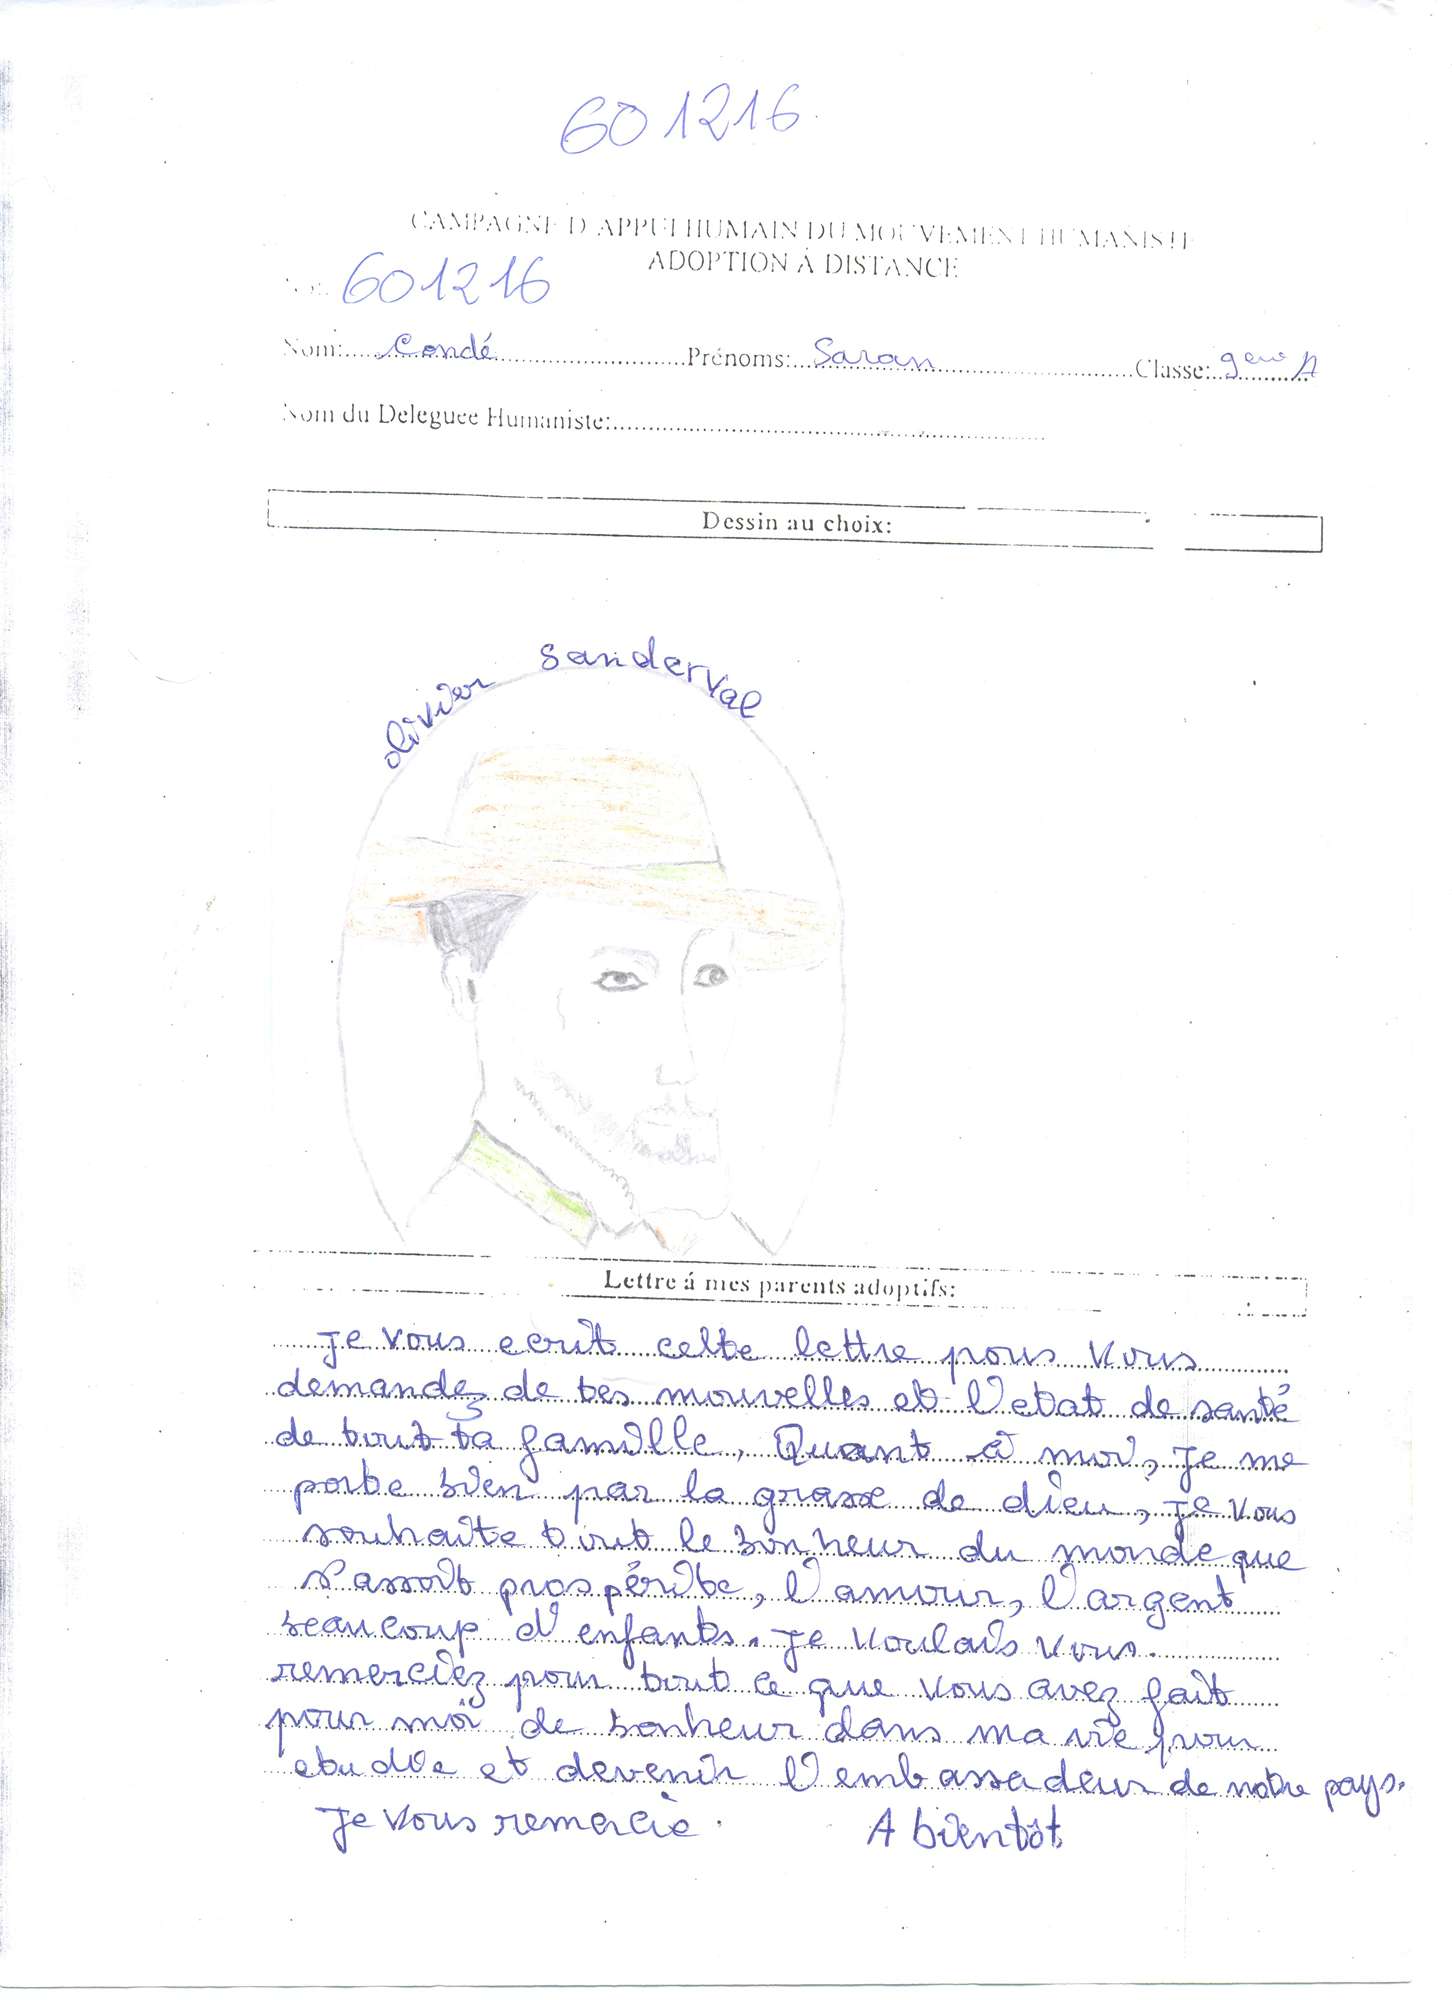 601216
CAMPAGNE D'APPUI HUMAIN DU MOUVEMENT HUMANISTE
ADOPTION À DISTANCE
601216
Nom: Condé Prénoms: Saran Classe: 9eme A
Nom du Deleguee Humaniste:
Dessin au choix:
olivier sanderval
Lettre á mes parents adoptifs:
Je vous ecrit cette lettre pous vous
demandez de tes nouvelles et l'etat de santé
de tout ta famille, Quant à moi, je me
porte bien par la grasse de dieu, je vous
souhaite tout le bonheur du monde que
s'assoit prospérite, l'amour, l'argent
beaucoup d'enfants. Je voulais vous.
remerciez pour tout ce que vous avez fait
pour moi de bonheur dans ma vie pour
etudie et devenir l'embassadeur de notre pays.
Je vous remercie. A bientôt